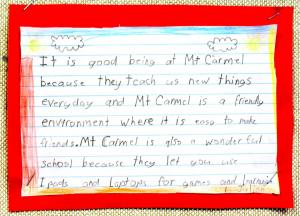 It is good being at Mt Carmel
because they teach us new things
everyday and Mt Carmel is a friendly
environment where it is easy to make
friends. Mt Carmel is also a wonderful
school because they let you use
Ipads and Laptops for games and